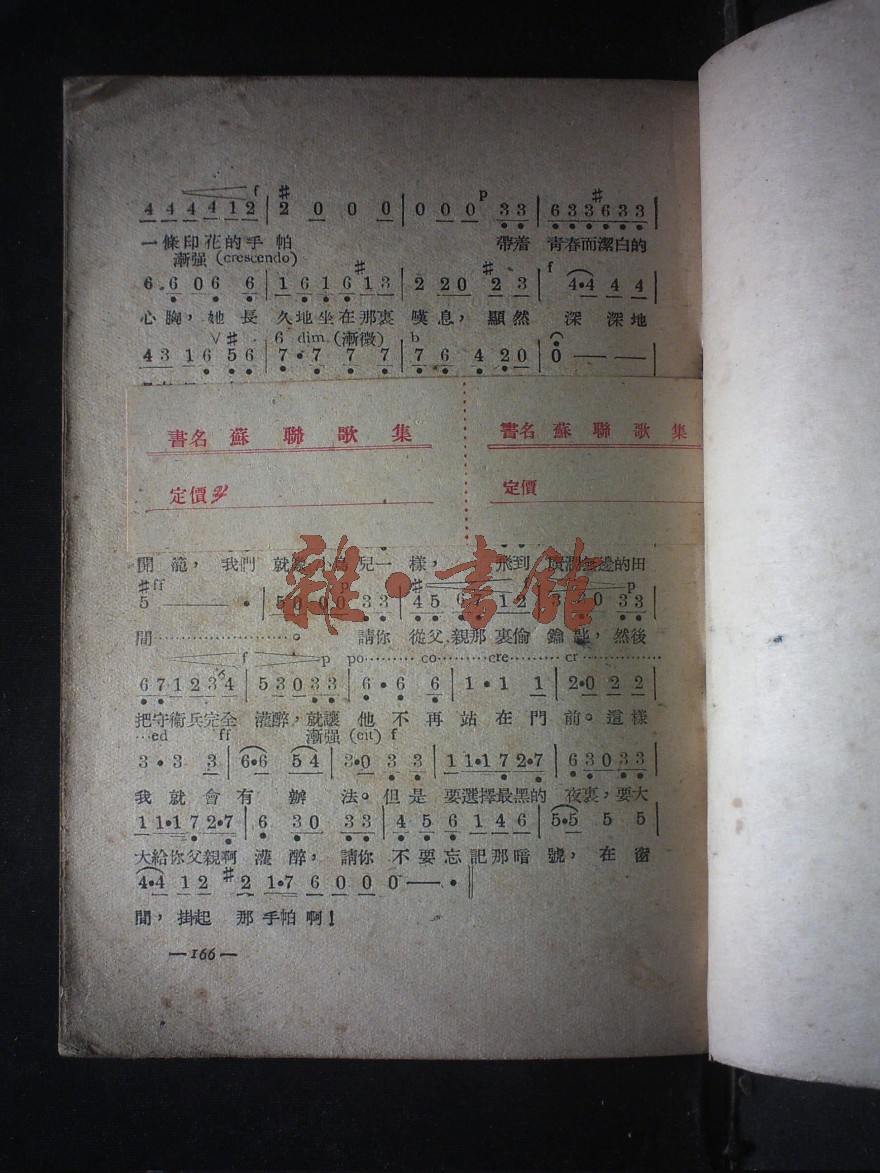 f ♯ p ♯
4 4 4 4 1 2 | 2 0 0 0 | 0 0 0 3 3 | 6 3 3 6 3 3 |
一條印花的手帕 帶着 青春而潔白的
漸强 (crescendo) ♯ ♯ f
6. 6 0 6 6 | 1 6 1 6 1 3 | 2 2 0 2 3 | 4•4 4 4 |
心胸，她長 久地坐在那裏 嘆息，顯然 深 深地
V ♯ 6 dim (漸微) b
4 3 1 6 5 6 | 7 • 7 7 7 | 7 6 4 2 0 | 0 — — |
書名 蘇聯歌集
定價
書名 蘇聯歌集
定價
開 籠，我們 就 小鳥兒一樣， 飛到 無邊的田
♯ff p ♯ p
5 — — • | 3 3 | 4 5 1 2 | 0 3 3 |
間………………。 請你 從父親那裏偷 鑰匙，然後
f p po……… co………cre……… cr ………………
6 7 1 2 3 4 | 5 3 0 3 3 | 6 • 6 6 | 1 • 1 1 | 2•0 2 2 |
把守衞兵完全 灌醉，就讓 他 不 再 站 在 門 前。這樣
…ed ff 漸强 (cit) f
3 • 3 3 | 6•6 5 4 | 3•0 3 3 | 1 1•1 7 2•7 | 6 3 0 3 3 |
我 就 會 有 辦 法。但 是 要選擇最黑的 夜裏，要大
1 1•1 7 2•7 | 6 3 0 3 3 | 4 5 6 1 4 6 | 5•5 5 5 |
大給你父親啊 灌 醉，請你 不 要忘記那暗 號，在 窗
4•4 1 2 ♯2 1•7 6 0 0 0 0 — • ‖
間，掛起 那 手帕啊！
— 166 —
雜·書館